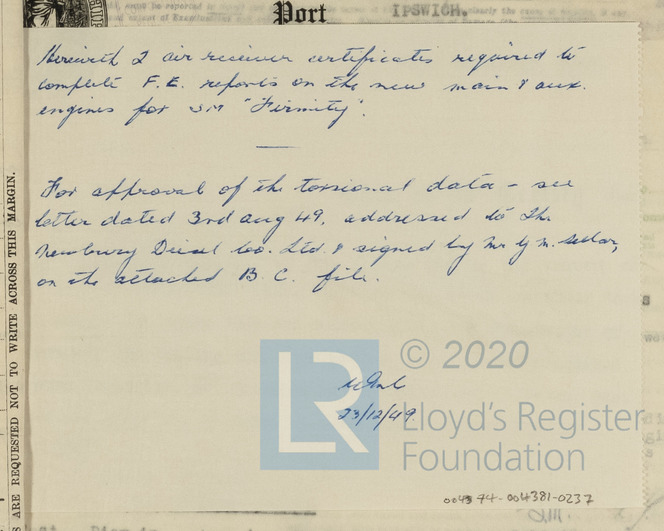 Port IPSWICH.
Herewith 2 air receiver certificates required to
complete F.E. reports on the new main & aux.
engines for SM "Firmity".
For approval of the torsional data - see
letter dated 3rd Aug 49, addressed to the
Newbury Diesel Co. Ltd. & signed by Mr
on the attached B.C. file.
23/12/49
LR
© 2020
Lloyd's Register
Foundation
004374-004381-0237
ARE REQUESTED NOT TO WRITE ACROSS THIS MARGIN.